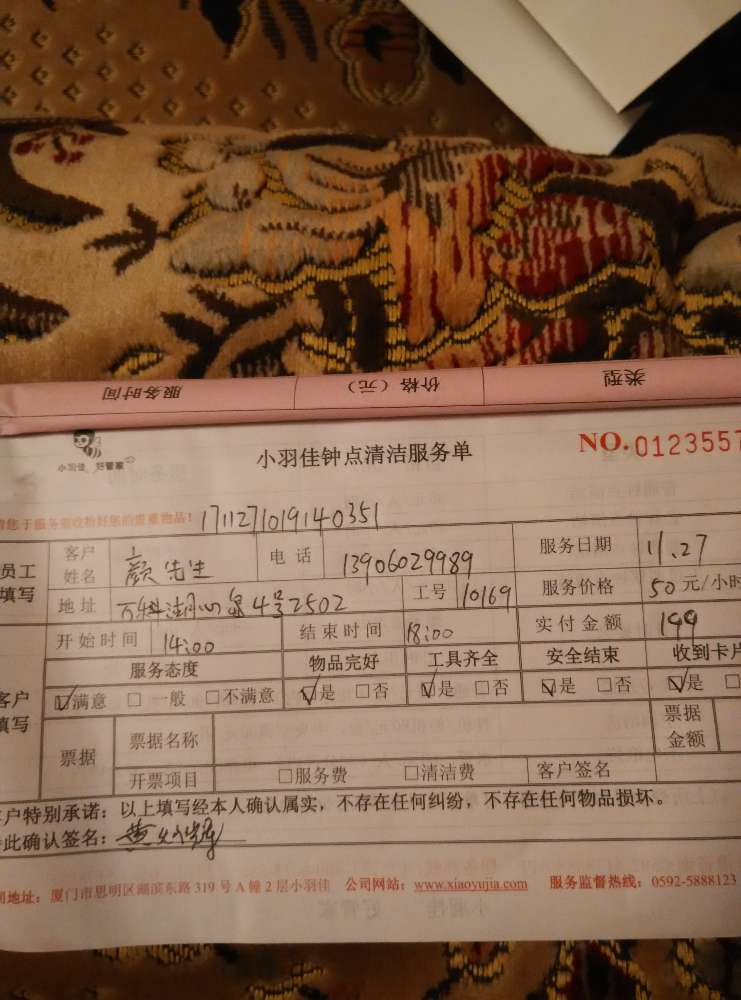 服务时间 价格（元） 类型
小羽佳 好管家
小羽佳钟点清洁服务单
NO.0123557
请您于服务前收拾好您的贵重物品！ 1711271019140351
员工填写
客户姓名 颜先生 电话 13906029989 服务日期 11.27
地址 万科湖心岛4号2502 工号 10169 服务价格 50元/小时
开始时间 14:00 结束时间 18:00 实付金额 199
客户填写
服务态度 物品完好 工具齐全 安全结束 收到卡片
☑满意 □一般 □不满意 ☑是 □否 ☑是 □否 ☑是 □否 ☑是 □
票据 票据名称 票据金额
开票项目 □服务费 □清洁费 客户签名
客户特别承诺：以上填写经本人确认属实，不存在任何纠纷，不存在任何物品损坏。
此确认签名：
地址：厦门市思明区湖滨东路319号A幢2层小羽佳 公司网站：www.xiaoyujia.com 服务监督热线：0592-5888123